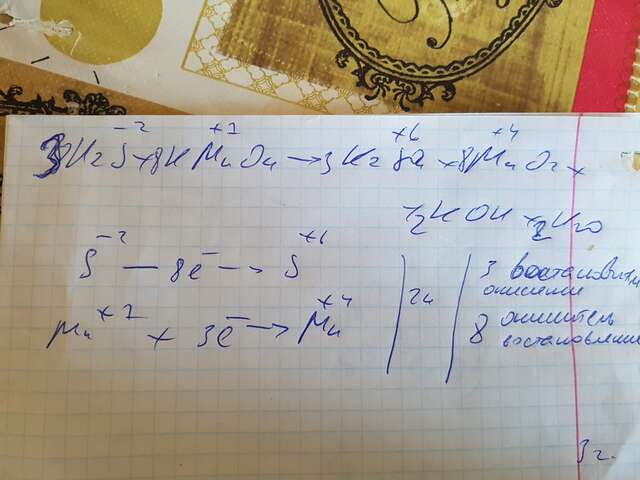 -2 +7 +6 +4
3K2S + 8KMnO4 → 3K2SO4 + 8MnO2 +
+2KOH + 2H2O
S-2 — 8ē → S+6 | 24 | 3 восстановитель
окисление
Mn+7 + 3ē → Mn+4 8 окислитель
востановление